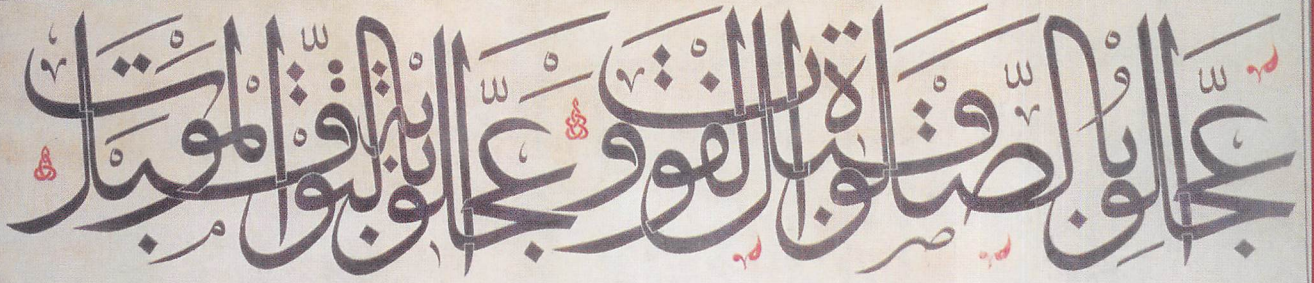 عجّلوا بالصّلوة قبل الفوت وعجّلوا بالتّوبة قبل الموت